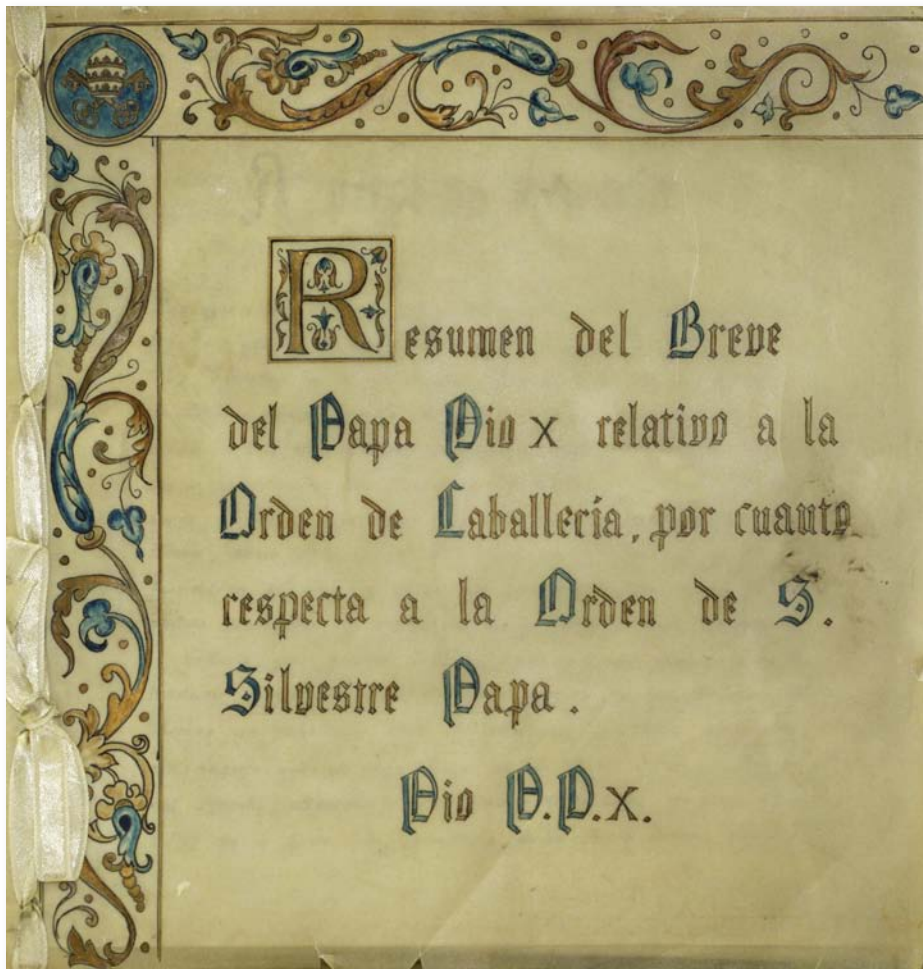 Resumen del Breve
del Papa Pio X relativo a la
Orden de Caballeria, por cuanto
respecta a la Orden de S.
Silvestre Papa.
Pio P.P.X.